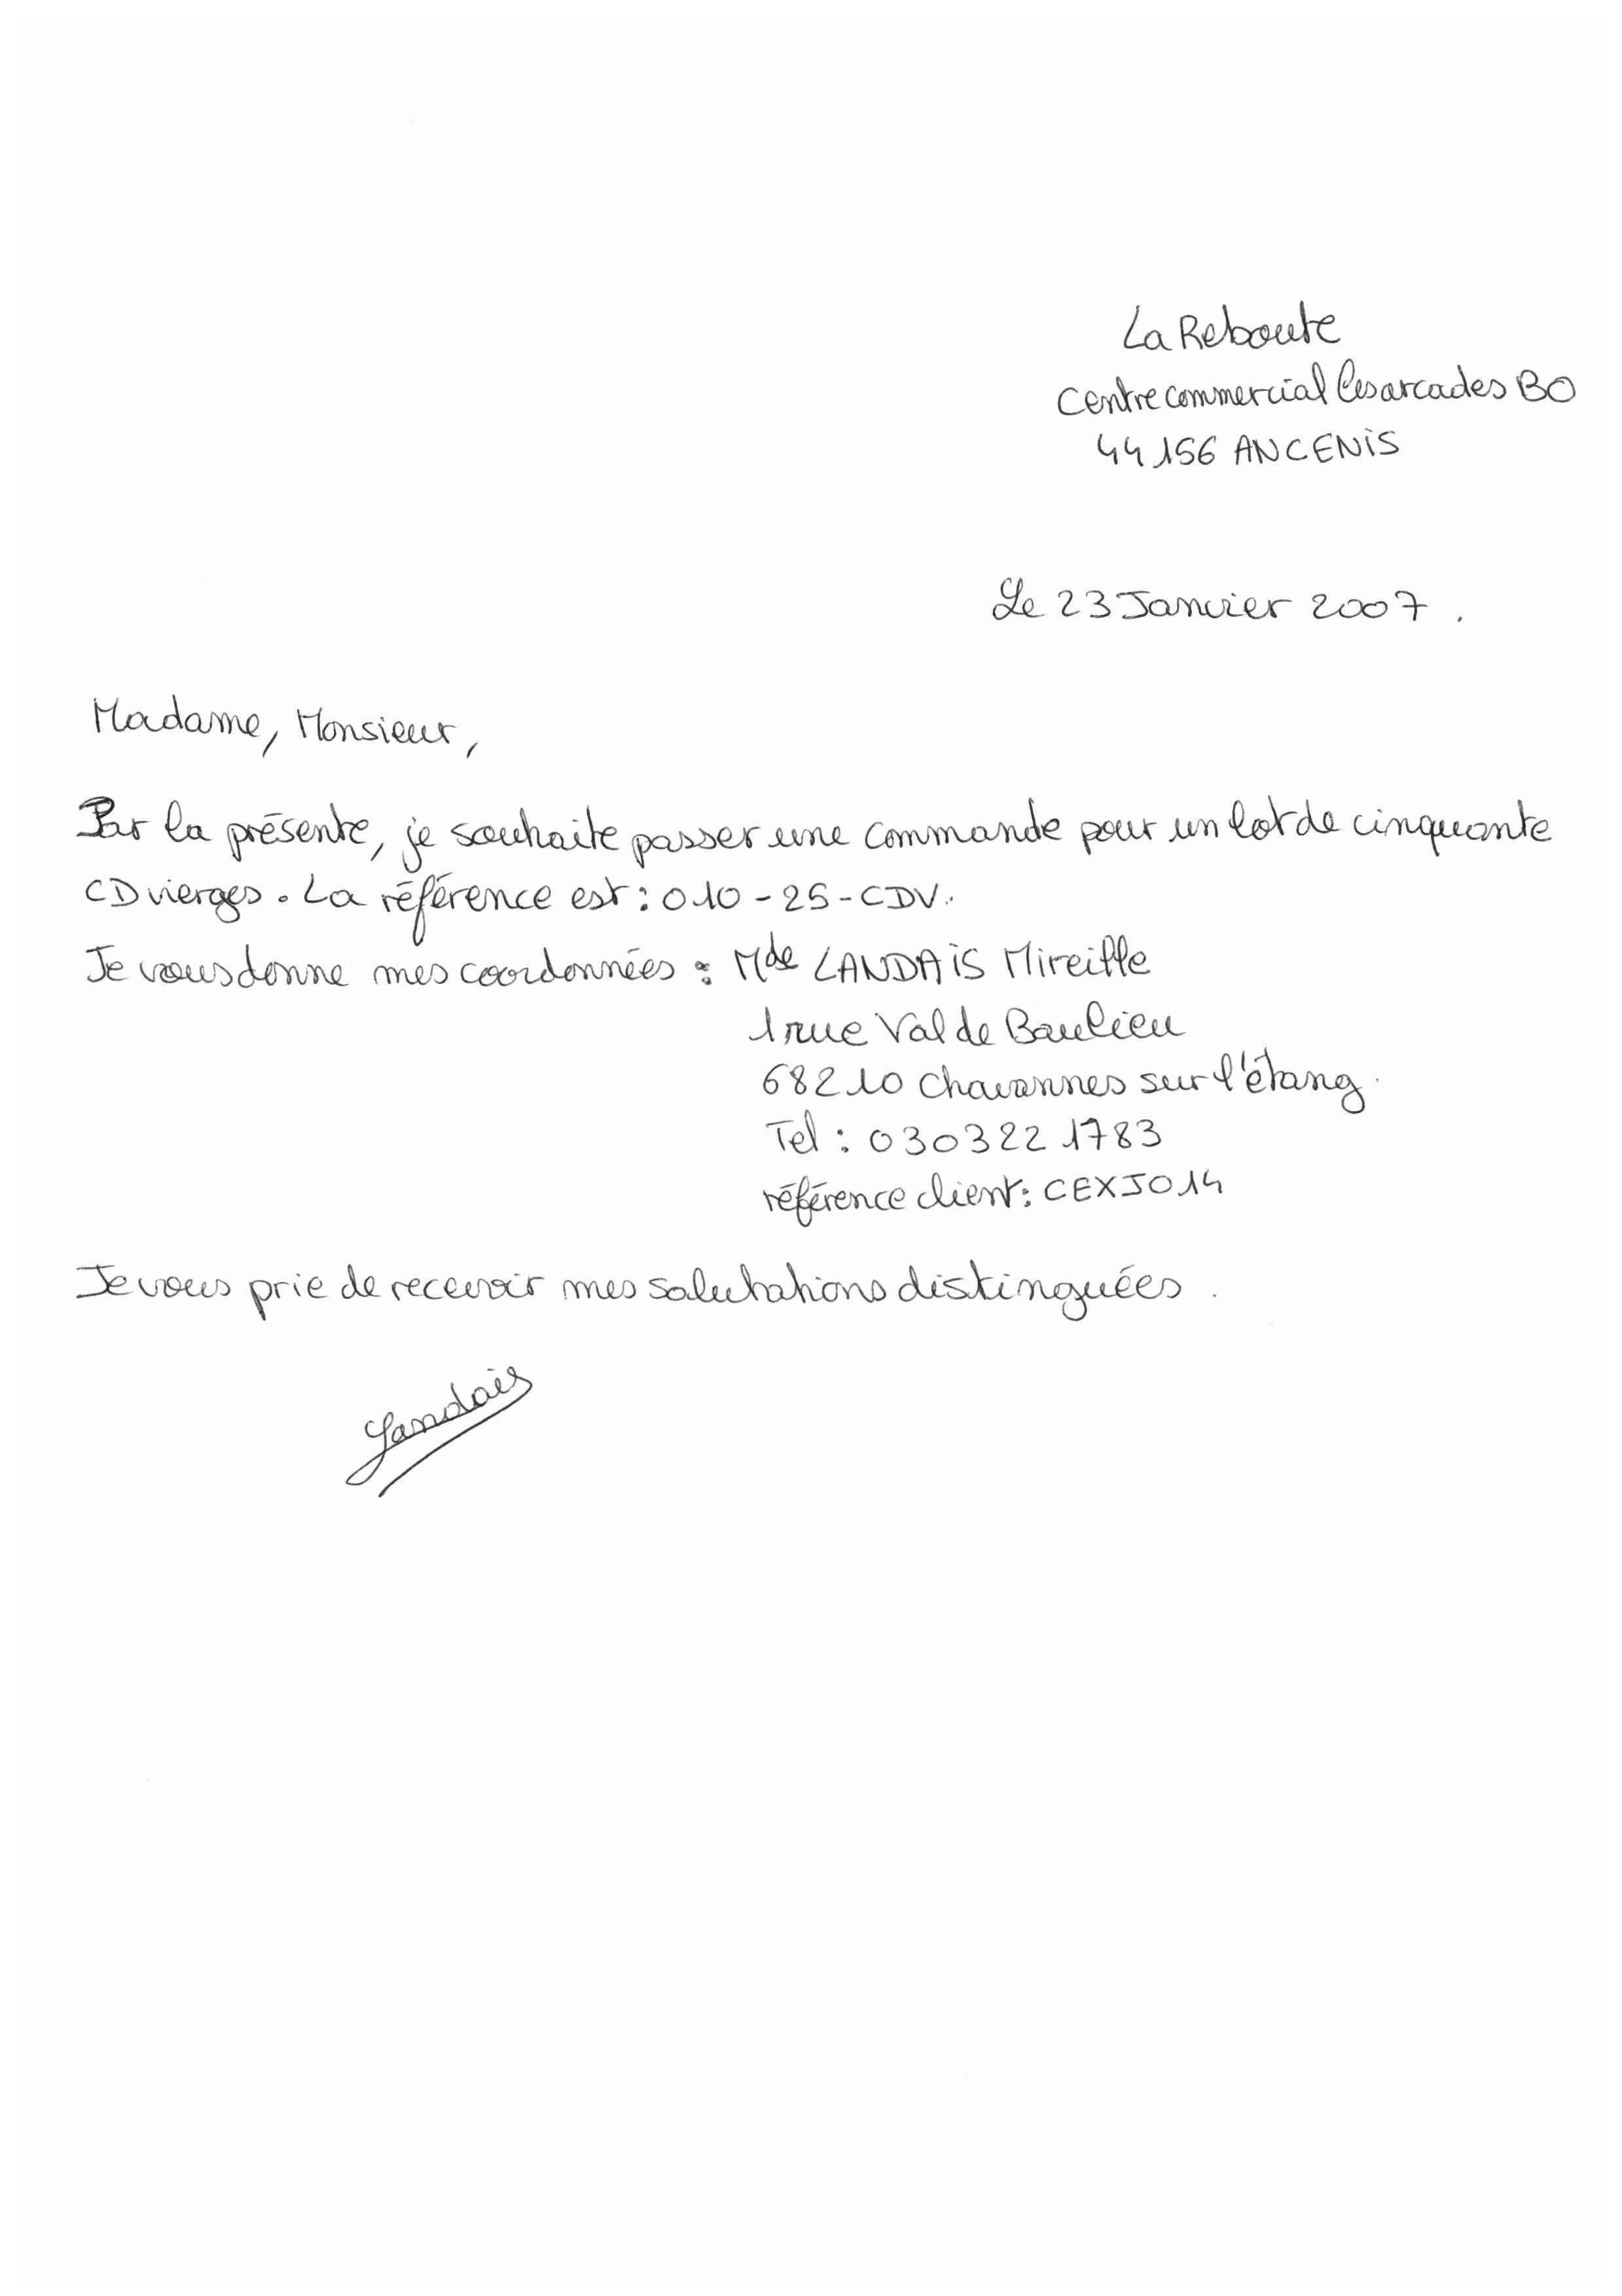 La Reboute
Centre commercial les arcades BO
44156 ANCENIS
Le 23 Janvier 2007.
Madame, Monsieur,
Par la présente, je souhaite passer une commande pour un lot de cinquante
CD vierges. La référence est : 010-25-CDV.
Je vous donne mes coordonnées : Mde LANDAIS Mireille
1 rue Val de Baulieu
68210 Chavannes sur l'étang.
Tel : 0303221783
référence client : CEXJO14
Je vous prie de recevoir mes salutations distinguées.
Landais